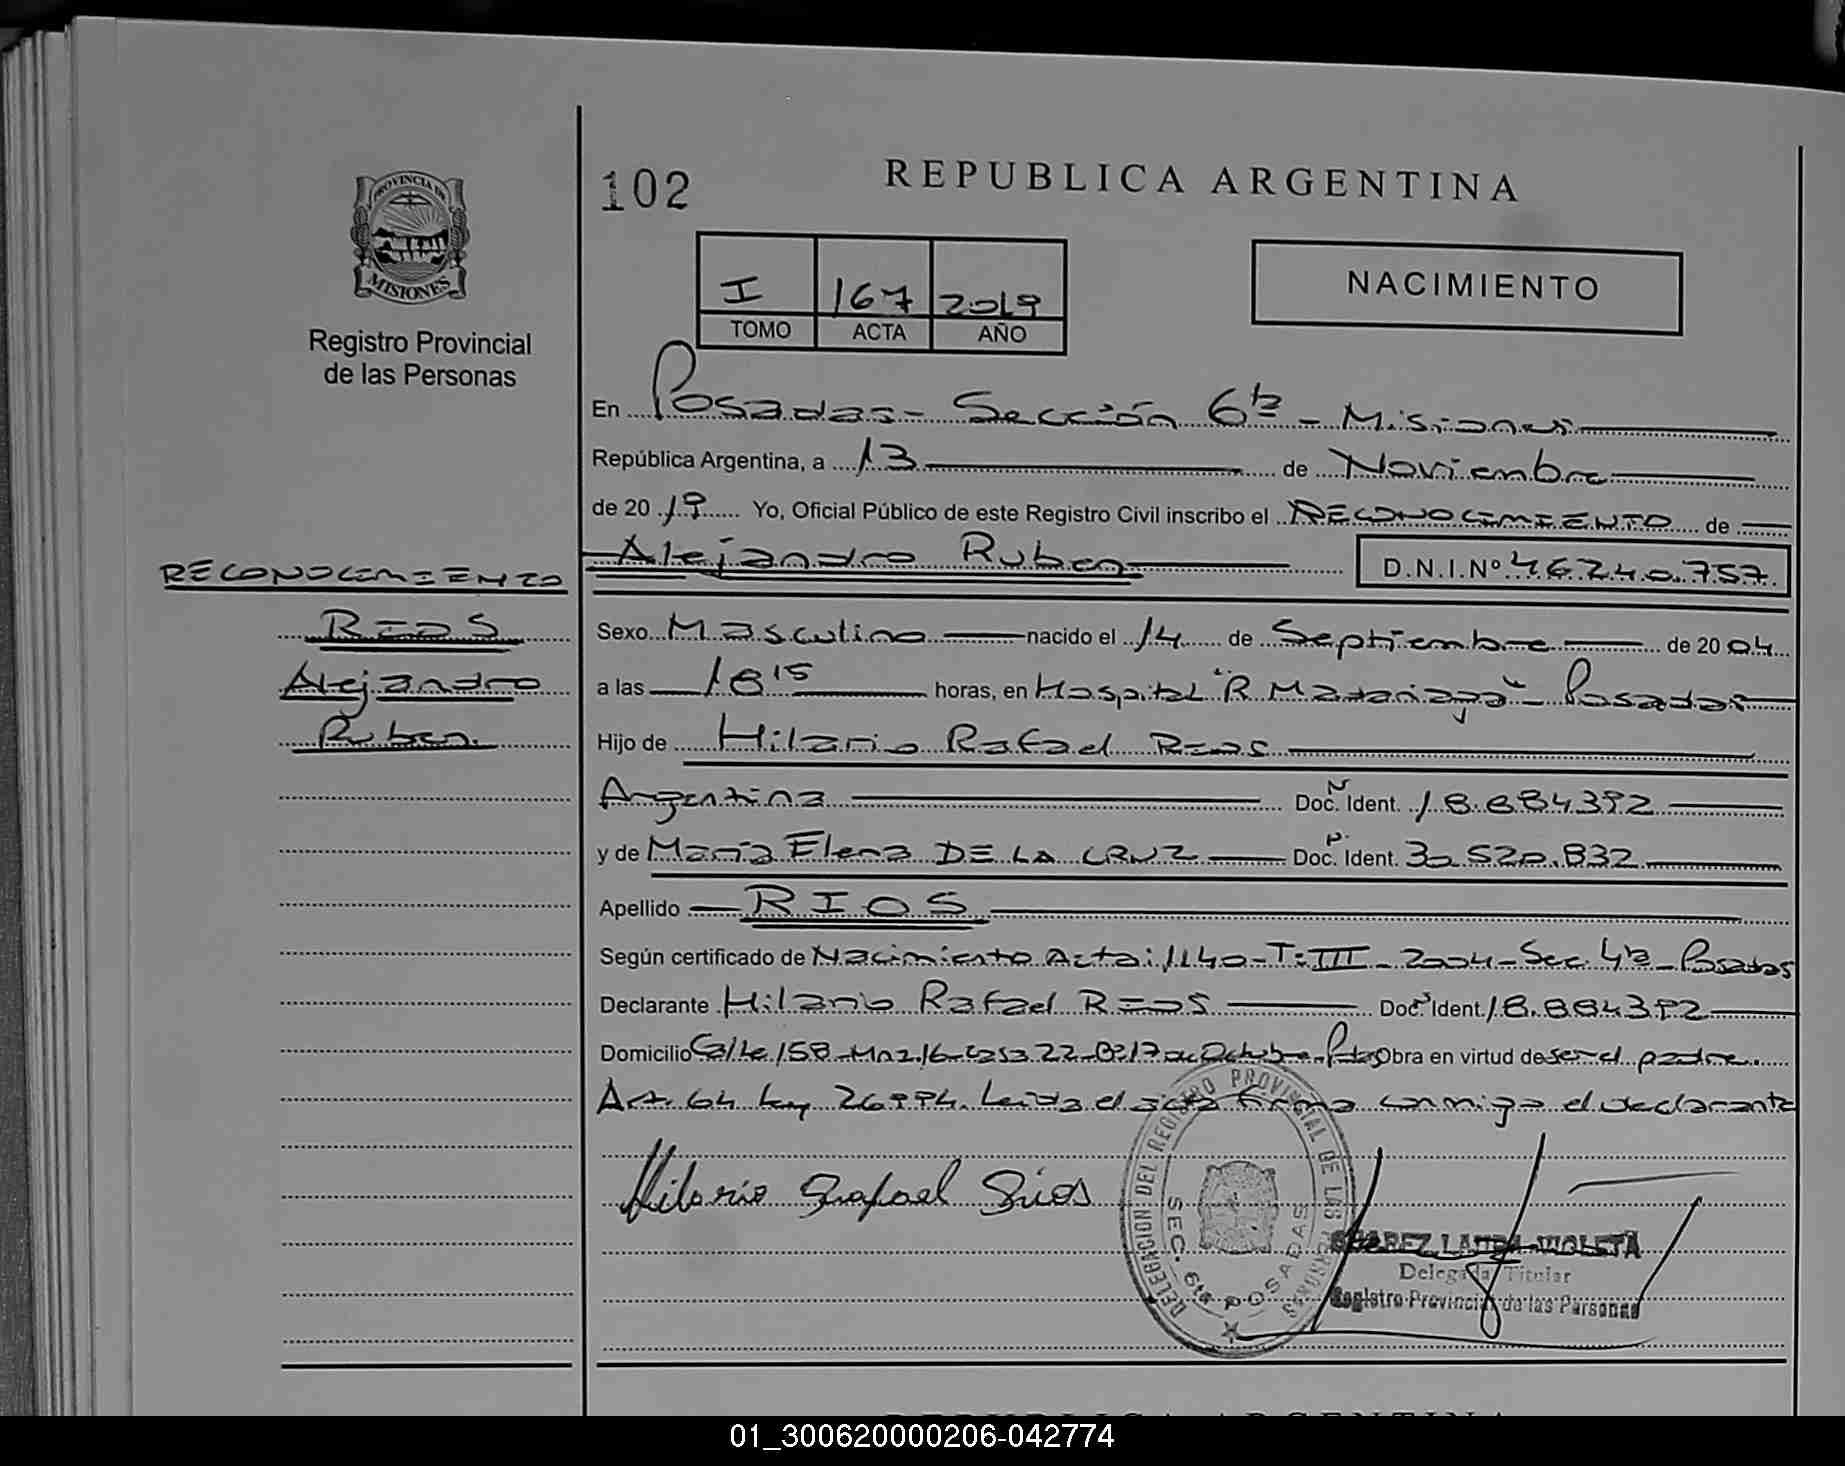 PROVINCIA DE
MISIONES
Registro Provincial
de las Personas
RECONOCIMIENTO
RIOS
Alejandro
Ruben.
102
REPUBLICA ARGENTINA
I 167 2019
TOMO ACTA AÑO
NACIMIENTO
En Posadas - Sección 6ta - Misiones
República Argentina, a 13 de Noviembre
de 2019 Yo, Oficial Público de este Registro Civil inscribo el RECONOCIMIENTO de
Alejandro Ruben D.N.I.Nº 46.240.757.
Sexo Masculino nacido el 14 de Septiembre de 2004
a las 18 15 horas, en Hospital "R. Madariaga" - Posadas
Hijo de Hilario Rafael RIOS
Argentina Doc. N Ident. 18.884.392
y de María Elena DE LA CRUZ Doc. N Ident. 30.520.832
Apellido RIOS
Según certificado de Nacimiento Acta: 1140 - T: III - 2004 - Sec. 4ta - Posadas
Declarante Hilario Rafael RIOS Doc. N Ident. 18.884.392
Domicilio Calle 158 - Mnz. 16 - Casa 22 - Bº 17 de Octubre - Pdas Obra en virtud de ser el padre.
Art. 64 Ley 26994. Leída el acta firma conmigo el declarante
Hilario Rafael Rios
DELEGACION DEL REGISTRO PROVINCIAL DE LAS PERSONAS
SEC. 6ta POSADAS
SUAREZ LAURA VIOLETA
Delegada Titular
Registro Provincial de las Personas
REPUBLICA ARGENTINA
01_300620000206-042774